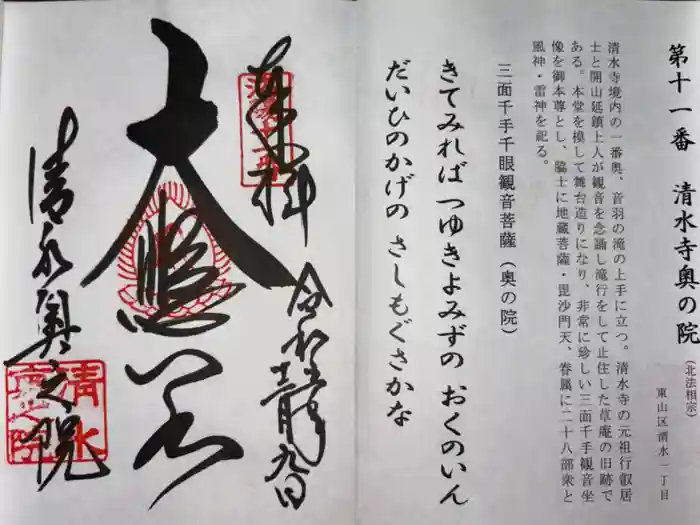 第十一番 清水寺奥の院
(北法相宗)
東山区清水一丁目
清水寺境内の一番奥、音羽の滝の上手に立つ。清水寺の元祖行叡居
士と開山延鎮上人が観音を念誦し滝行をして止住した草庵の旧跡で
ある。本堂を模して舞台造りになり、非常に珍しい三面千手観音坐
像を御本尊とし、脇士に地蔵菩薩・毘沙門天、眷属に二十八部衆と
風神・雷神を祀る。
三面千手千眼観音菩薩(奥の院)
きてみれば つゆきよみずの おくのいん
だいひのかげの さしもぐさかな
奉拝
令和
九日
大悲
清水奥之院
清水